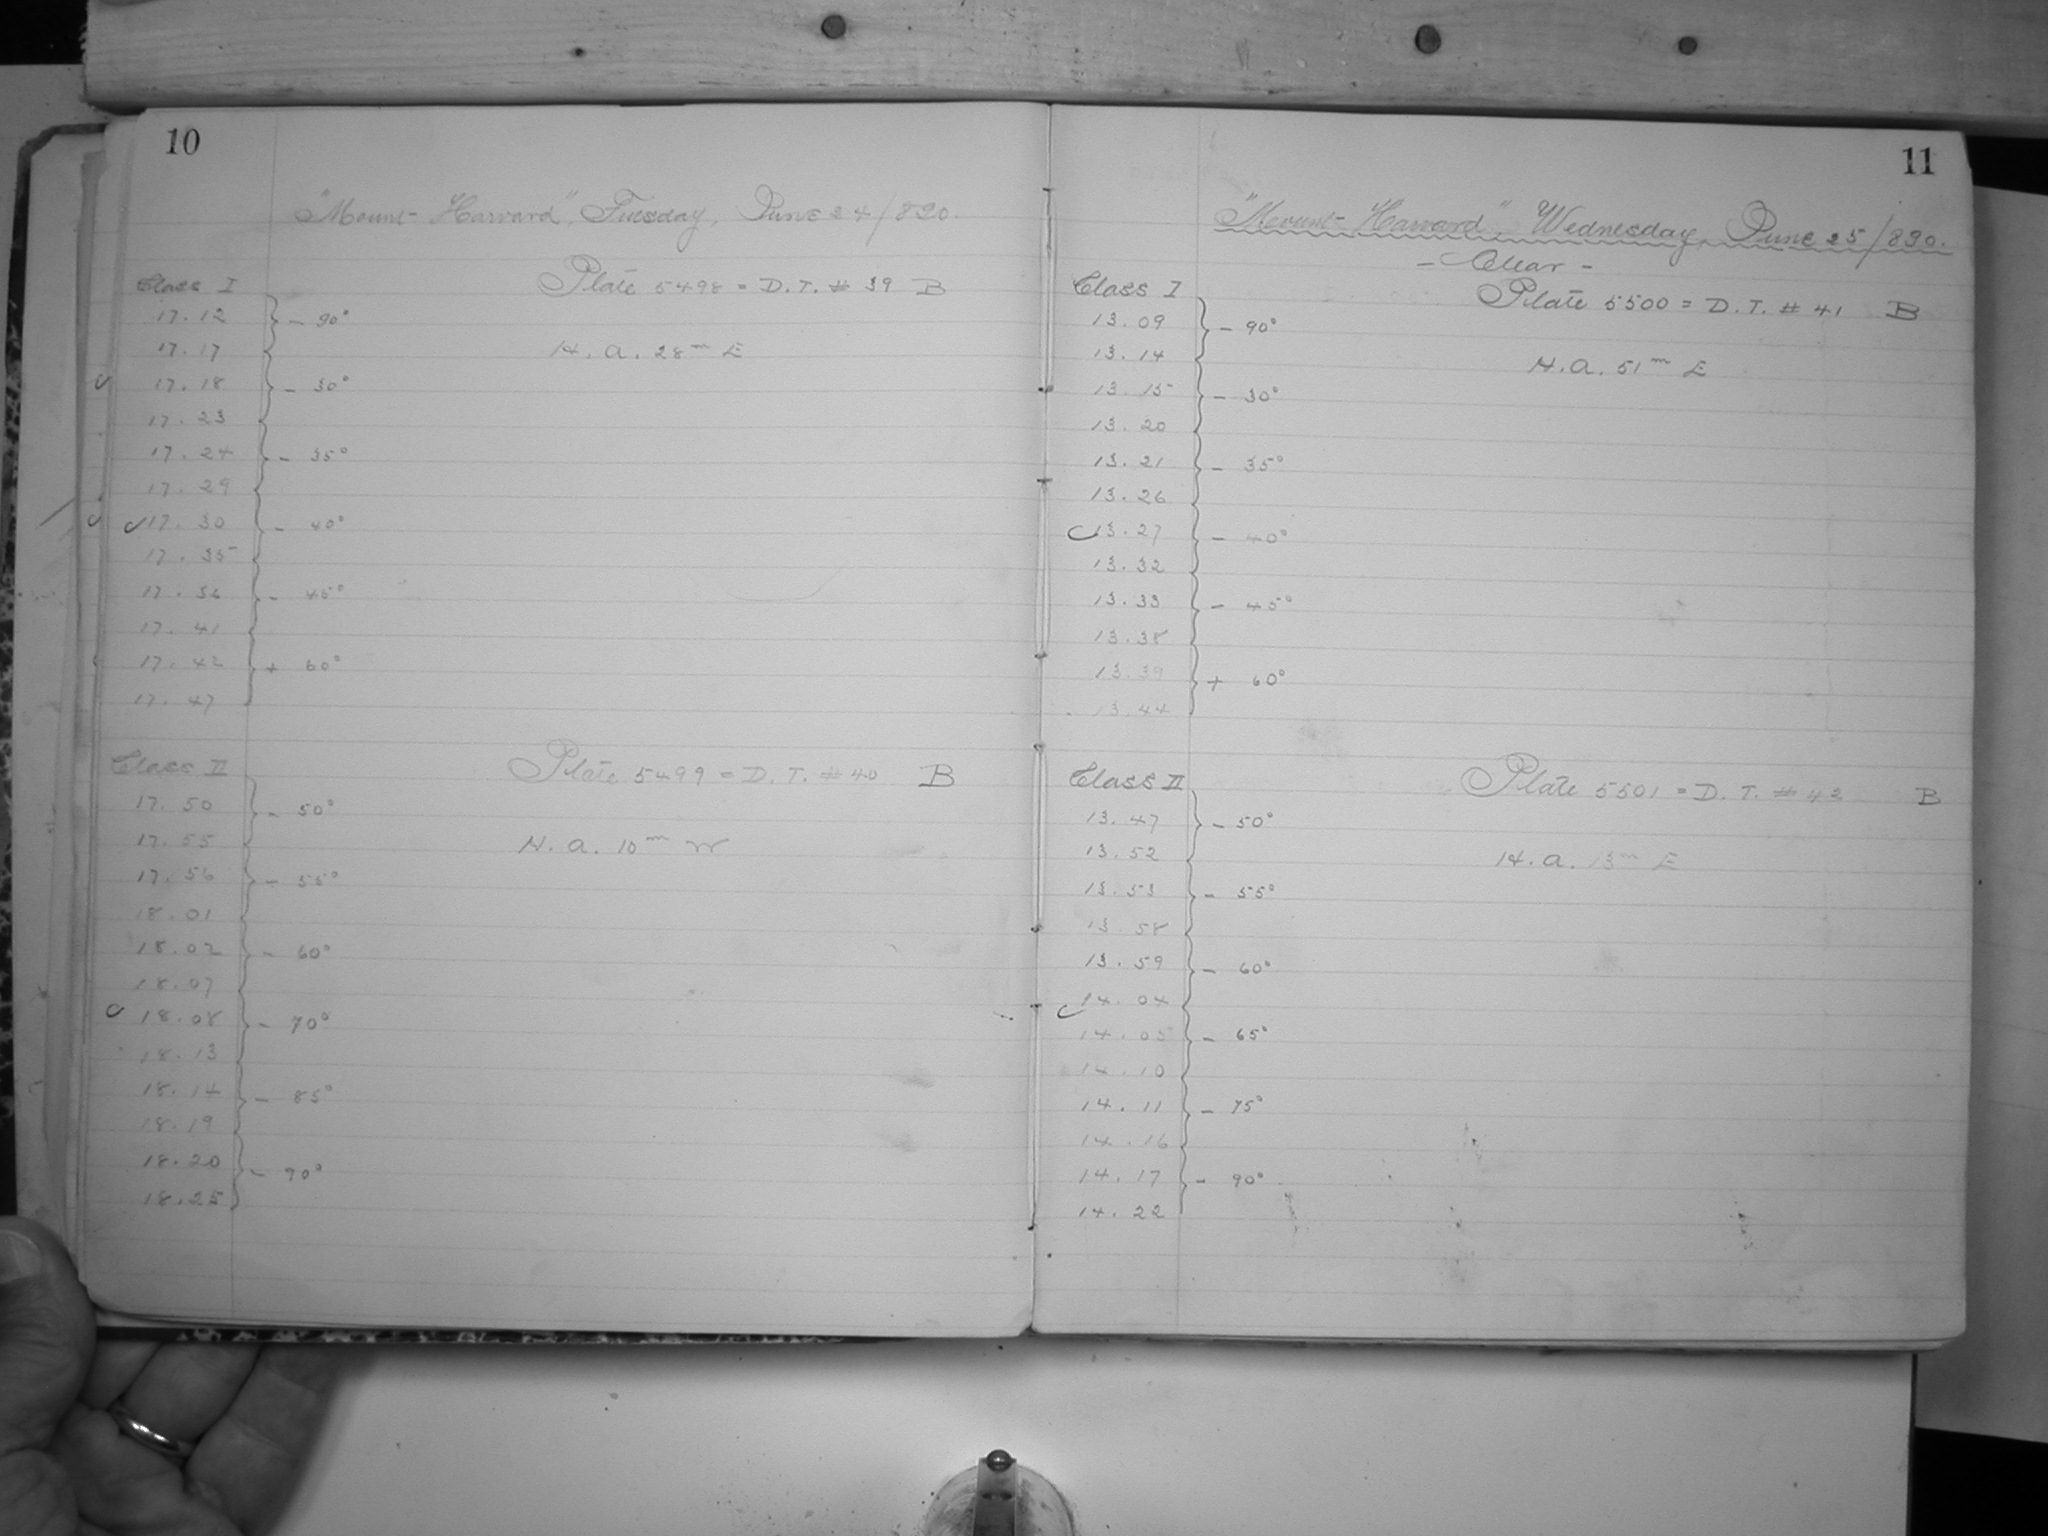 10
"Mount Harvard", Tuesday, June 24/890.
Class I Plate 5498 = D. T. # 39 B
17. 12 } - 90°
17. 17 H. A. 28m E
17. 18 } - 30°
17. 23
17. 24 } - 35°
17. 29
17. 30 } - 40°
17. 35
17. 36 } - 45°
17. 41
17. 42 } + 60°
17. 47
Class II Plate 5499 = D. T. # 40 B
17. 50 } - 50°
17. 55 H. A. 10m W
17. 56 } - 55°
18. 01
18. 02 } - 60°
18. 07
18. 08 } - 70°
18. 13
18. 14 } - 85°
18. 19
18. 20 } - 90°
18. 25
11
"Mount Harvard", Wednesday, June 25/890.
- Clear -
Class I Plate 5500 = D. T. # 41 B
13. 09 } - 90°
13. 14 H. A. 51m E
13. 15 } - 30°
13. 20
13. 21 } - 35°
13. 26
13. 27 } - 40°
13. 32
13. 33 } - 45°
13. 38
13. 39 } + 60°
13. 44
Class II Plate 5501 = D. T. # 42 B
13. 47 } - 50°
13. 52 H. A. 13m E
13. 53 } - 55°
13. 58
13. 59 } - 60°
14. 04
14. 05 } - 65°
14. 10
14. 11 } - 75°
14. 16
14. 17 } - 90°
14. 22